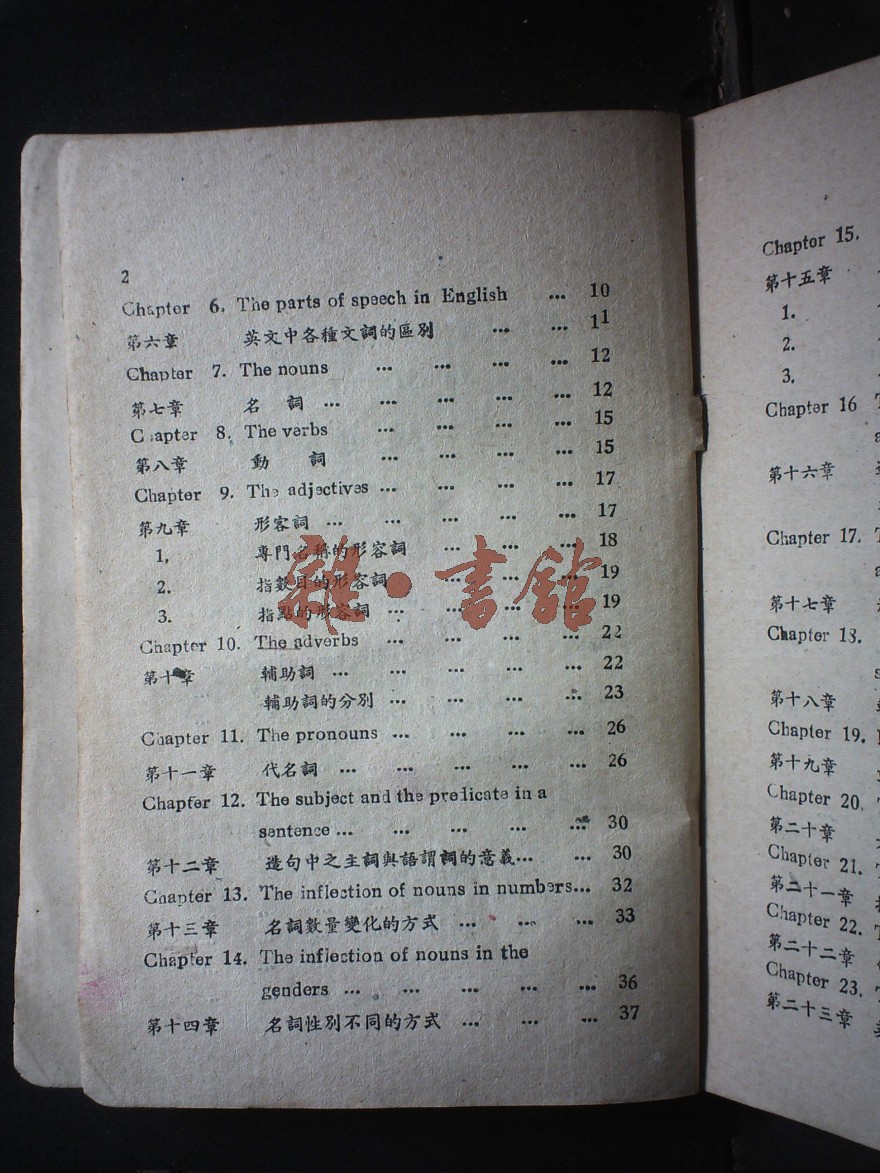 2
Chapter 6. The parts of speech in English ... 10
第六章 英文中各種文詞的區別 ... ... 11
Chapter 7. The nouns ... ... ... ... 12
第七章 名 詞 ... ... ... ... ... 12
Chapter 8. The verbs ... ... ... ... 15
第八章 動 詞 ... ... ... ... 15
Chapter 9. The adjectives ... ... ... ... 17
第九章 形容詞 ... ... ... ... ... 17
1, 專門名稱的形容詞 ... ... ... 18
2. 指數目的形容詞 ... ... ... 19
3. 指點的形容詞 ... ... ... ... 19
Chapter 10. The adverbs ... ... ... ... 22
第十章 輔助詞 ... ... ... ... ... 22
輔助詞的分別 ... ... ... ... 23
Chapter 11. The pronouns ... ... ... ... 26
第十一章 代名詞 ... ... ... ... ... 26
Chapter 12. The subject and the predicate in a
sentence ... ... ... ... ... 30
第十二章 造句中之主詞與語謂詞的意義... ... 30
Chapter 13. The inflection of nouns in numbers... 32
第十三章 名詞數量變化的方式 ... ... ... 33
Chapter 14. The inflection of nouns in the
genders ... ... ... ... ... 36
第十四章 名詞性別不同的方式 ... ... ... 37
雜·書館
Chapter 15.
第十五章
1.
2.
3.
Chapter 16
第十六章
Chapter 17.
第十七章
Chapter 18.
第十八章
Chapter 19.
第十九章
Chapter 20.
第二十章
Chapter 21.
第二十一章
Chapter 22.
第二十二章
Chapter 23.
第二十三章